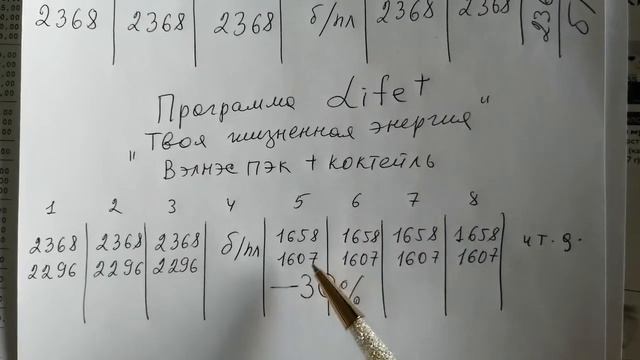 2368 | 2368 | 2368 | б/пл | 2368 | 2368 | 236
Программа Life+
"Твоя жизненная энергия"
Вэлнэс пэк + коктейль
1 2 3 4 5 6 7 8
2368 | 2368 | 2368 | б/пл | 1658 | 1658 | 1658 | 1658 | и т. д.
2296 | 2296 | 2296 | 1607 | 1607 | 1607 | 1607
-30%